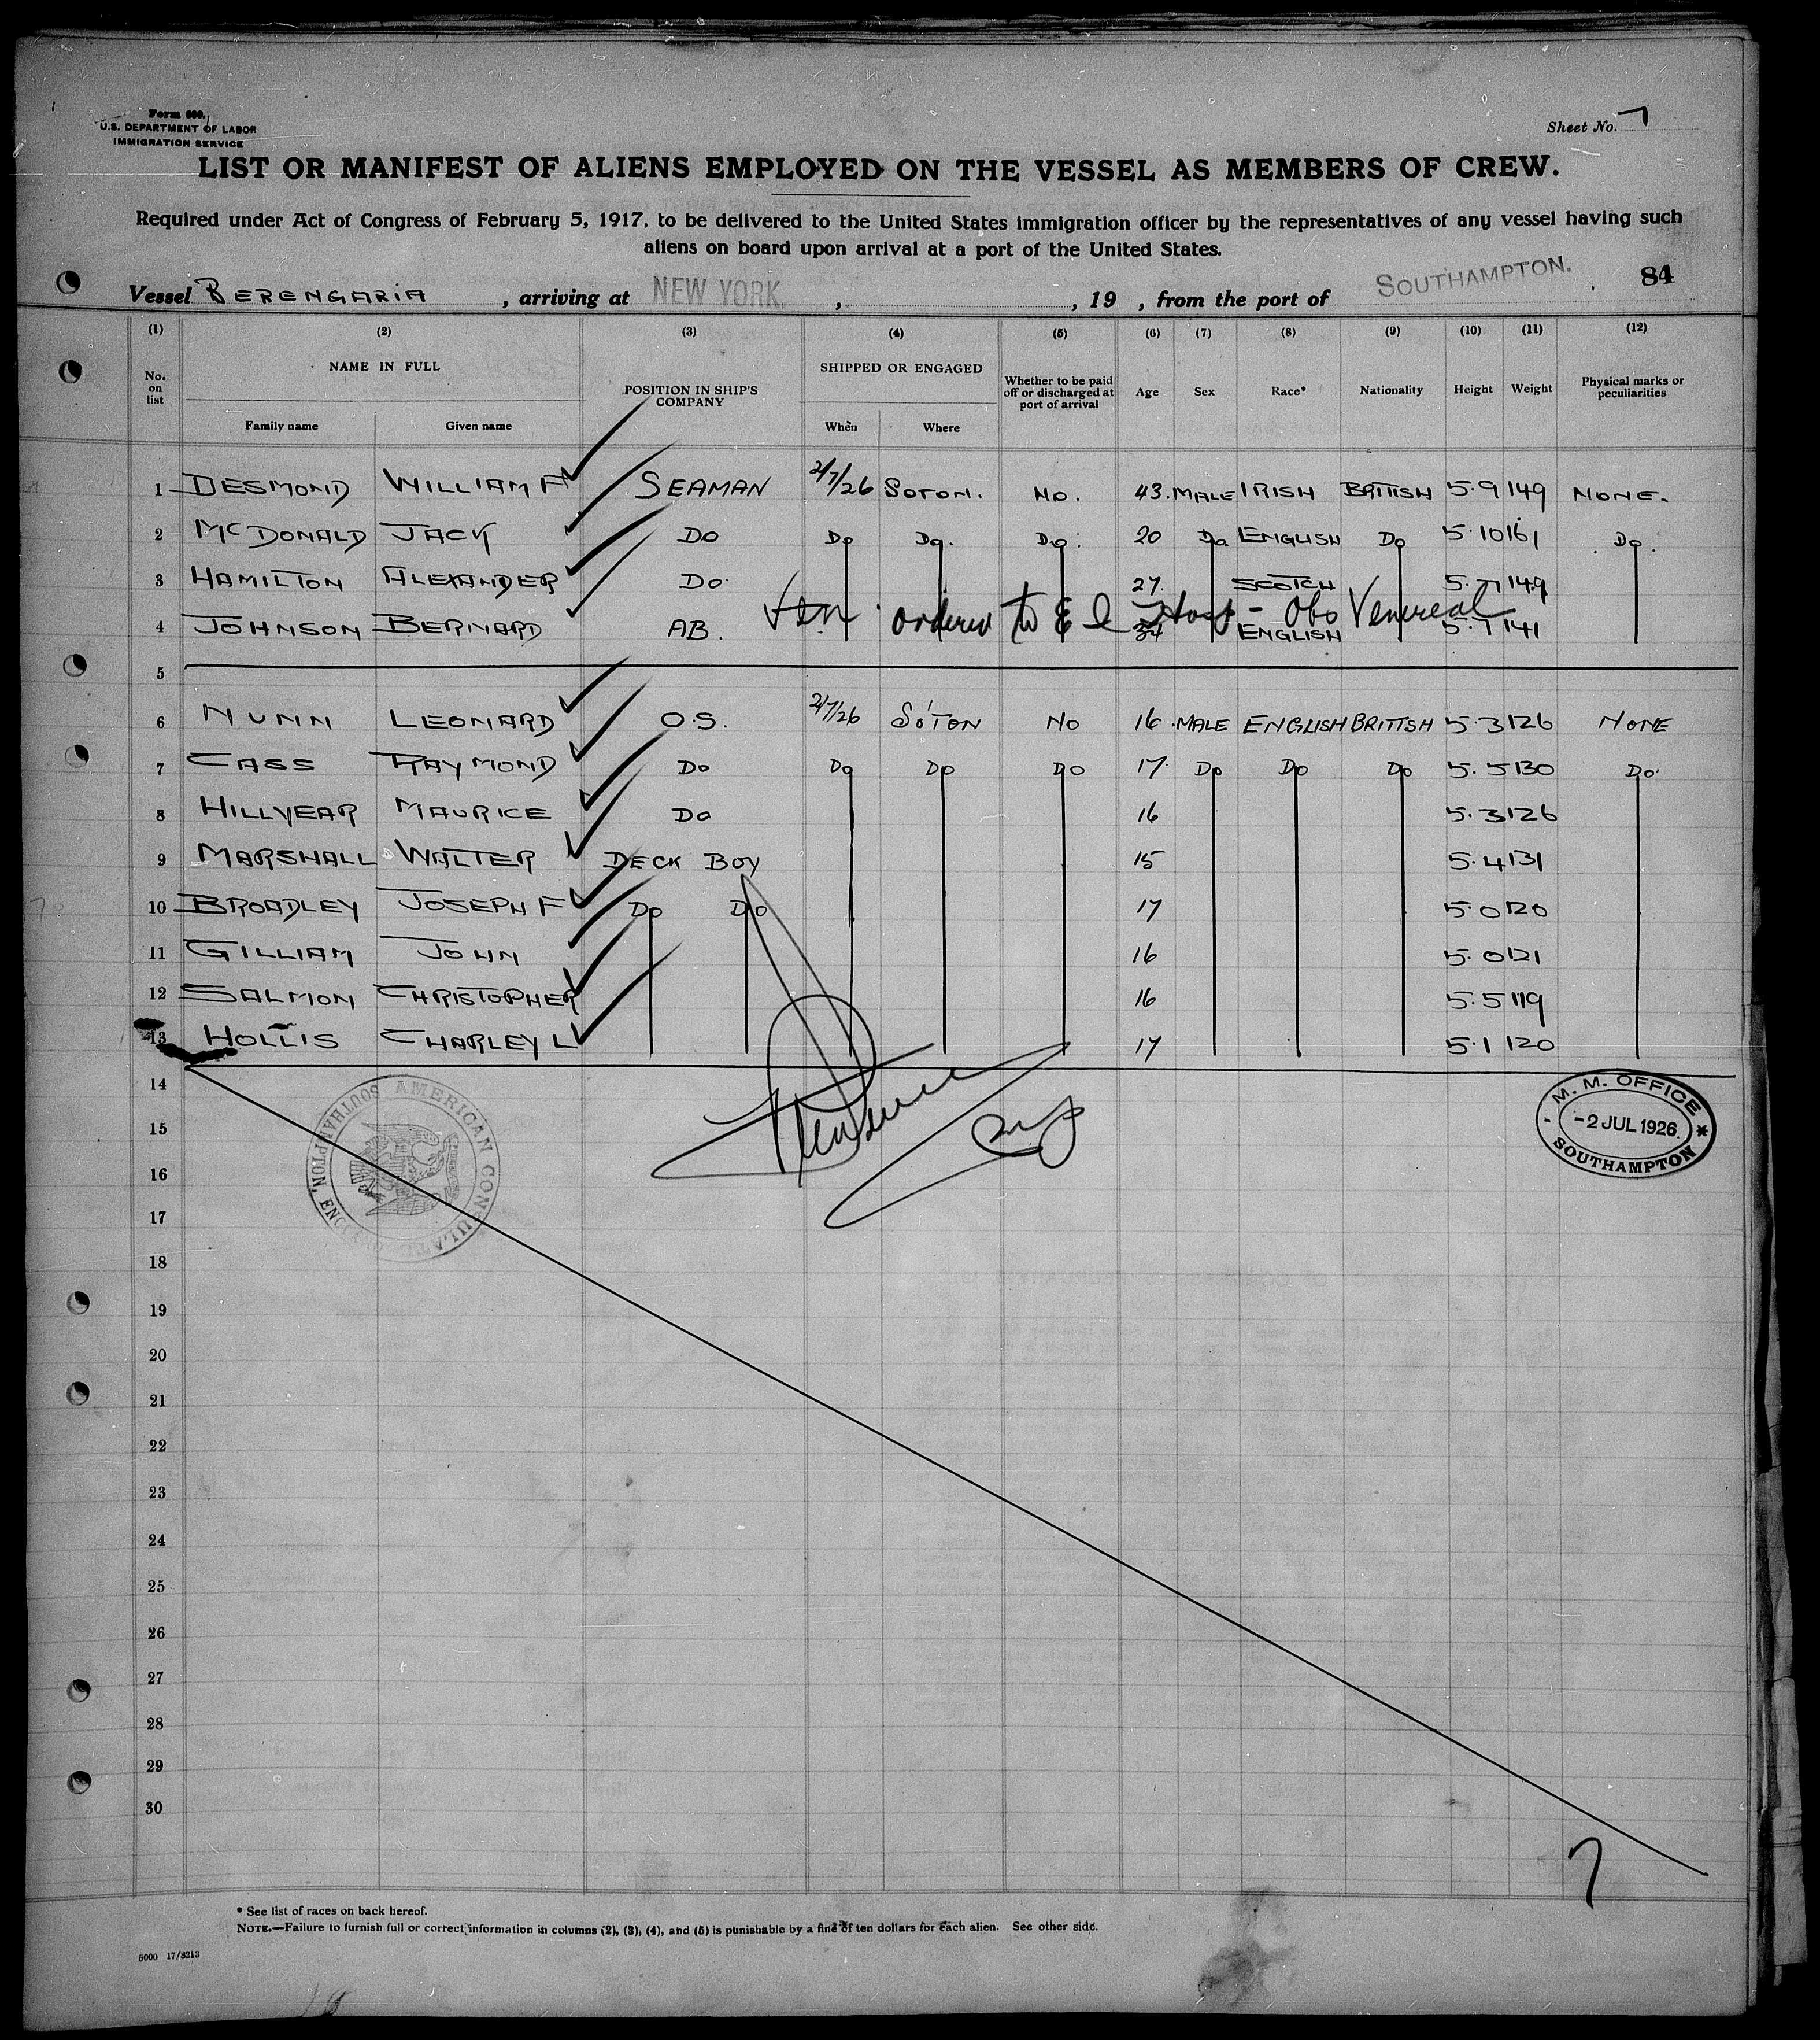 Form 600.
U.S. DEPARTMENT OF LABOR
IMMIGRATION SERVICE
Sheet No. 7
LIST OR MANIFEST OF ALIENS EMPLOYED ON THE VESSEL AS MEMBERS OF CREW.
Required under Act of Congress of February 5, 1917, to be delivered to the United States immigration officer by the representatives of any vessel having such
aliens on board upon arrival at a port of the United States.
84
Vessel BERENGARIA, arriving at NEW YORK. , , 19 , from the port of SOUTHAMPTON.
(1) (2) (3) (4) (5) (6) (7) (8) (9) (10) (11) (12)
No. on list NAME IN FULL Family name Given name POSITION IN SHIP'S COMPANY SHIPPED OR ENGAGED When Where Whether to be paid off or discharged at port of arrival Age Sex Race* Nationality Height Weight Physical marks or peculiarities
1 DESMOND WILLIAM F SEAMAN 2/7/26 SOTON. NO. 43. MALE IRISH BRITISH 5.9 149 NONE.
2 McDONALD JACK DO DO DO. DO. 20 DO ENGLISH DO 5.10 161 DO.
3 HAMILTON ALEXANDER DO. 27. SCOTCH 5.7 149
ordered to E I Hosp - Obs Venereal
4 JOHNSON BERNARD AB. 34 ENGLISH 5.7 141
5
6 NUNN LEONARD O.S. 2/7/26 SO'TON NO 16. MALE ENGLISH BRITISH 5.3 126 NONE
7 CASS RAYMOND DO DO DO DO 17. DO DO DO 5.5 130 DO.
8 HILLYEAR MAURICE DO 16 5.3 126
9 MARSHALL WALTER DECK BOY 15 5.4 131
10 BROADLEY JOSEPH F DO DO 17 5.0 120
11 GILLIAM JOHN 16 5.0 121
12 SALMON CHRISTOPHER 16 5.5 119
13 HOLLIS CHARLEY L 17 5.1 120
14
AMERICAN CONSULATE SOUTHAMPTON, ENG
M. M. OFFICE
-2 JUL 1926
SOUTHAMPTON
15
16
17
18
19
20
21
22
23
24
25
26
27
28
29
30
7
* See list of races on back hereof.
NOTE.—Failure to furnish full or correct information in columns (2), (3), (4), and (5) is punishable by a fine of ten dollars for each alien. See other side.
5000 17/8213